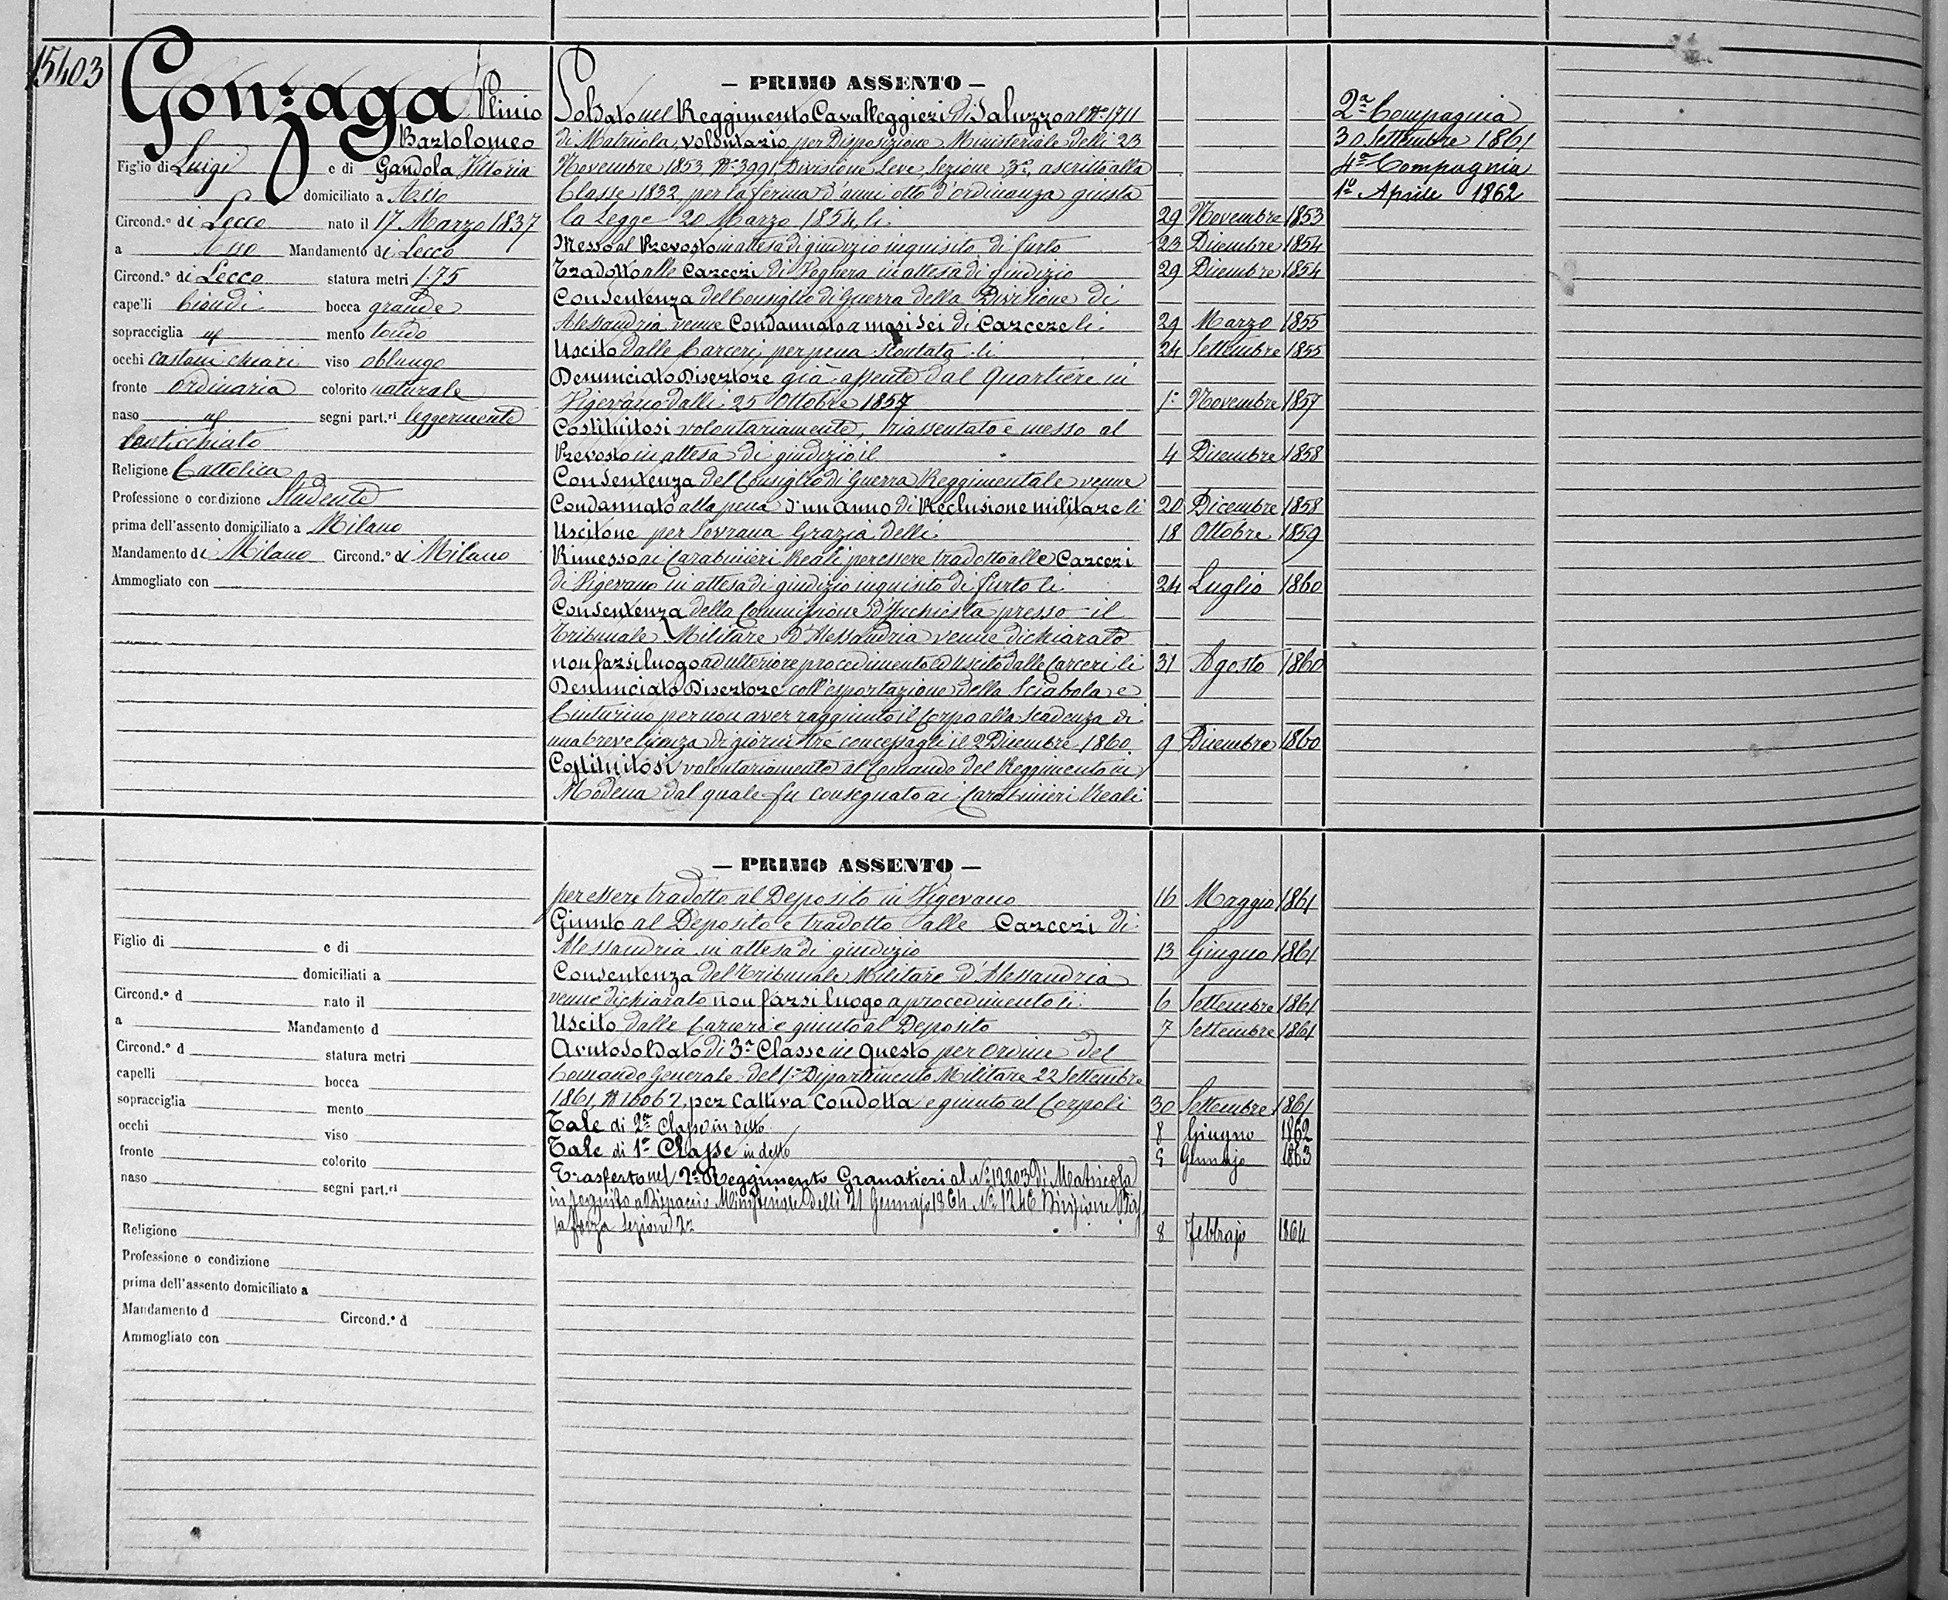 15403
Gonzaga Plinio
Bartolomeo
Figlio di Luigi e di Gandola Vittoria
domiciliato a Asso
Circond.° di Lecco nato il 17 Marzo 1837
a Asso Mandamento di Lecco
Circond.° di Lecco statura metri 1.75
capelli biondi bocca grande
sopracciglia id mento tondo
occhi castani chiari viso oblungo
fronte ordinaria colorito naturale
naso id segni part.ri leggermente
lenticchiato
Religione Cattolica
Professione o condizione Studente
prima dell'assento domiciliato a Milano
Mandamento di Milano Circond.° di Milano
Ammogliato con
— PRIMO ASSENTO —
Soldato nel Reggimento Cavalleggieri di Saluzzo al N° 1711
di Matricola, volontario per Disposizione Ministeriale delli 23
Novembre 1853 N° 3991, Divisione Leve, Sezione 3a, ascritto alla
Classe 1832, per la ferma d'anni otto d'ordinanza giusta
la Legge 20 Marzo 1854, li 29 Novembre 1853
Messo al Prevosto in attesa di giudizio inquisito di furto 23 Dicembre 1854
Tradotto alle Carceri di Voghera in attesa di giudizio 29 Dicembre 1854
Con sentenza del Consiglio di Guerra della Divisione di
Alessandria venne Condannato a mesi sei di Carcere li 29 Marzo 1855
Uscito dalle Carceri per pena scontata li 24 Settembre 1855
Denunciato Disertore già assente dal Quartiere in
Vigevano dalli 25 Ottobre 1857 1° Novembre 1857
Costituitosi volontariamente, riassentato e messo al
Prevosto in attesa di giudizio il 4 Dicembre 1858
Con sentenza del Consiglio di Guerra Reggimentale venne
Condannato alla pena d'un anno di Reclusione militare li 20 Dicembre 1858
Uscitone per Sovrana Grazia delli 18 Ottobre 1859
Rimesso ai Carabinieri Reali per essere tradotto alle Carceri
di Vigevano in attesa di giudizio inquisito di furto li 24 Luglio 1860
Con sentenza della Commissione d'Inchiesta presso il
Tribunale Militare d'Alessandria venne dichiarato
non farsi luogo ad ulteriore procedimento ed uscito dalle Carceri li 31 Agosto 1860
Denunciato Disertore coll'esportazione della Sciabola e
Cinturino per non aver raggiunto il Corpo alla scadenza di
una breve licenza di giorni tre concessagli il 2 Dicembre 1860 9 Dicembre 1860
Costituitosi volontariamente al Comando del Reggimento in
Modena dal quale fu consegnato ai Carabinieri Reali
2a Compagnia
30 Settembre 1861
4a Compagnia
1° Aprile 1862
Figlio di e di
domiciliati a
Circond.° d nato il
a Mandamento d
Circond.° d statura metri
capelli bocca
sopracciglia mento
occhi viso
fronte colorito
naso segni part.ri
Religione
Professione o condizione
prima dell'assento domiciliato a
Mandamento d Circond.° d
Ammogliato con
— PRIMO ASSENTO —
per essere tradotto al Deposito in Vigevano 16 Maggio 1861
Giunto al Deposito e tradotto alle Carceri di
Alessandria in attesa di giudizio 13 Giugno 1861
Con sentenza del Tribunale Militare d'Alessandria
venne dichiarato non farsi luogo a procedimento li 6 Settembre 1861
Uscito dalle Carceri e giunto al Deposito 7 Settembre 1861
Avuto Soldato di 3a Classe in questo per ordine del
Comando Generale del 1° Dipartimento Militare 22 Settembre
1861, N° 16067, per Cattiva Condotta e giunto al Corpo li 30 Settembre 1861
Tale di 2a Classe in detto 8 Giugno 1862
Tale di 1a Classe in detto Gennajo 1863
Trasferto nel 2° Reggimento Granatieri al N° 12203 di Matricola
in seguito a Dispaccio Ministeriale delli 21 Gennajo 1864 N° 1246 Divisione
forza Sezione 2a 8 Febbrajo 1864